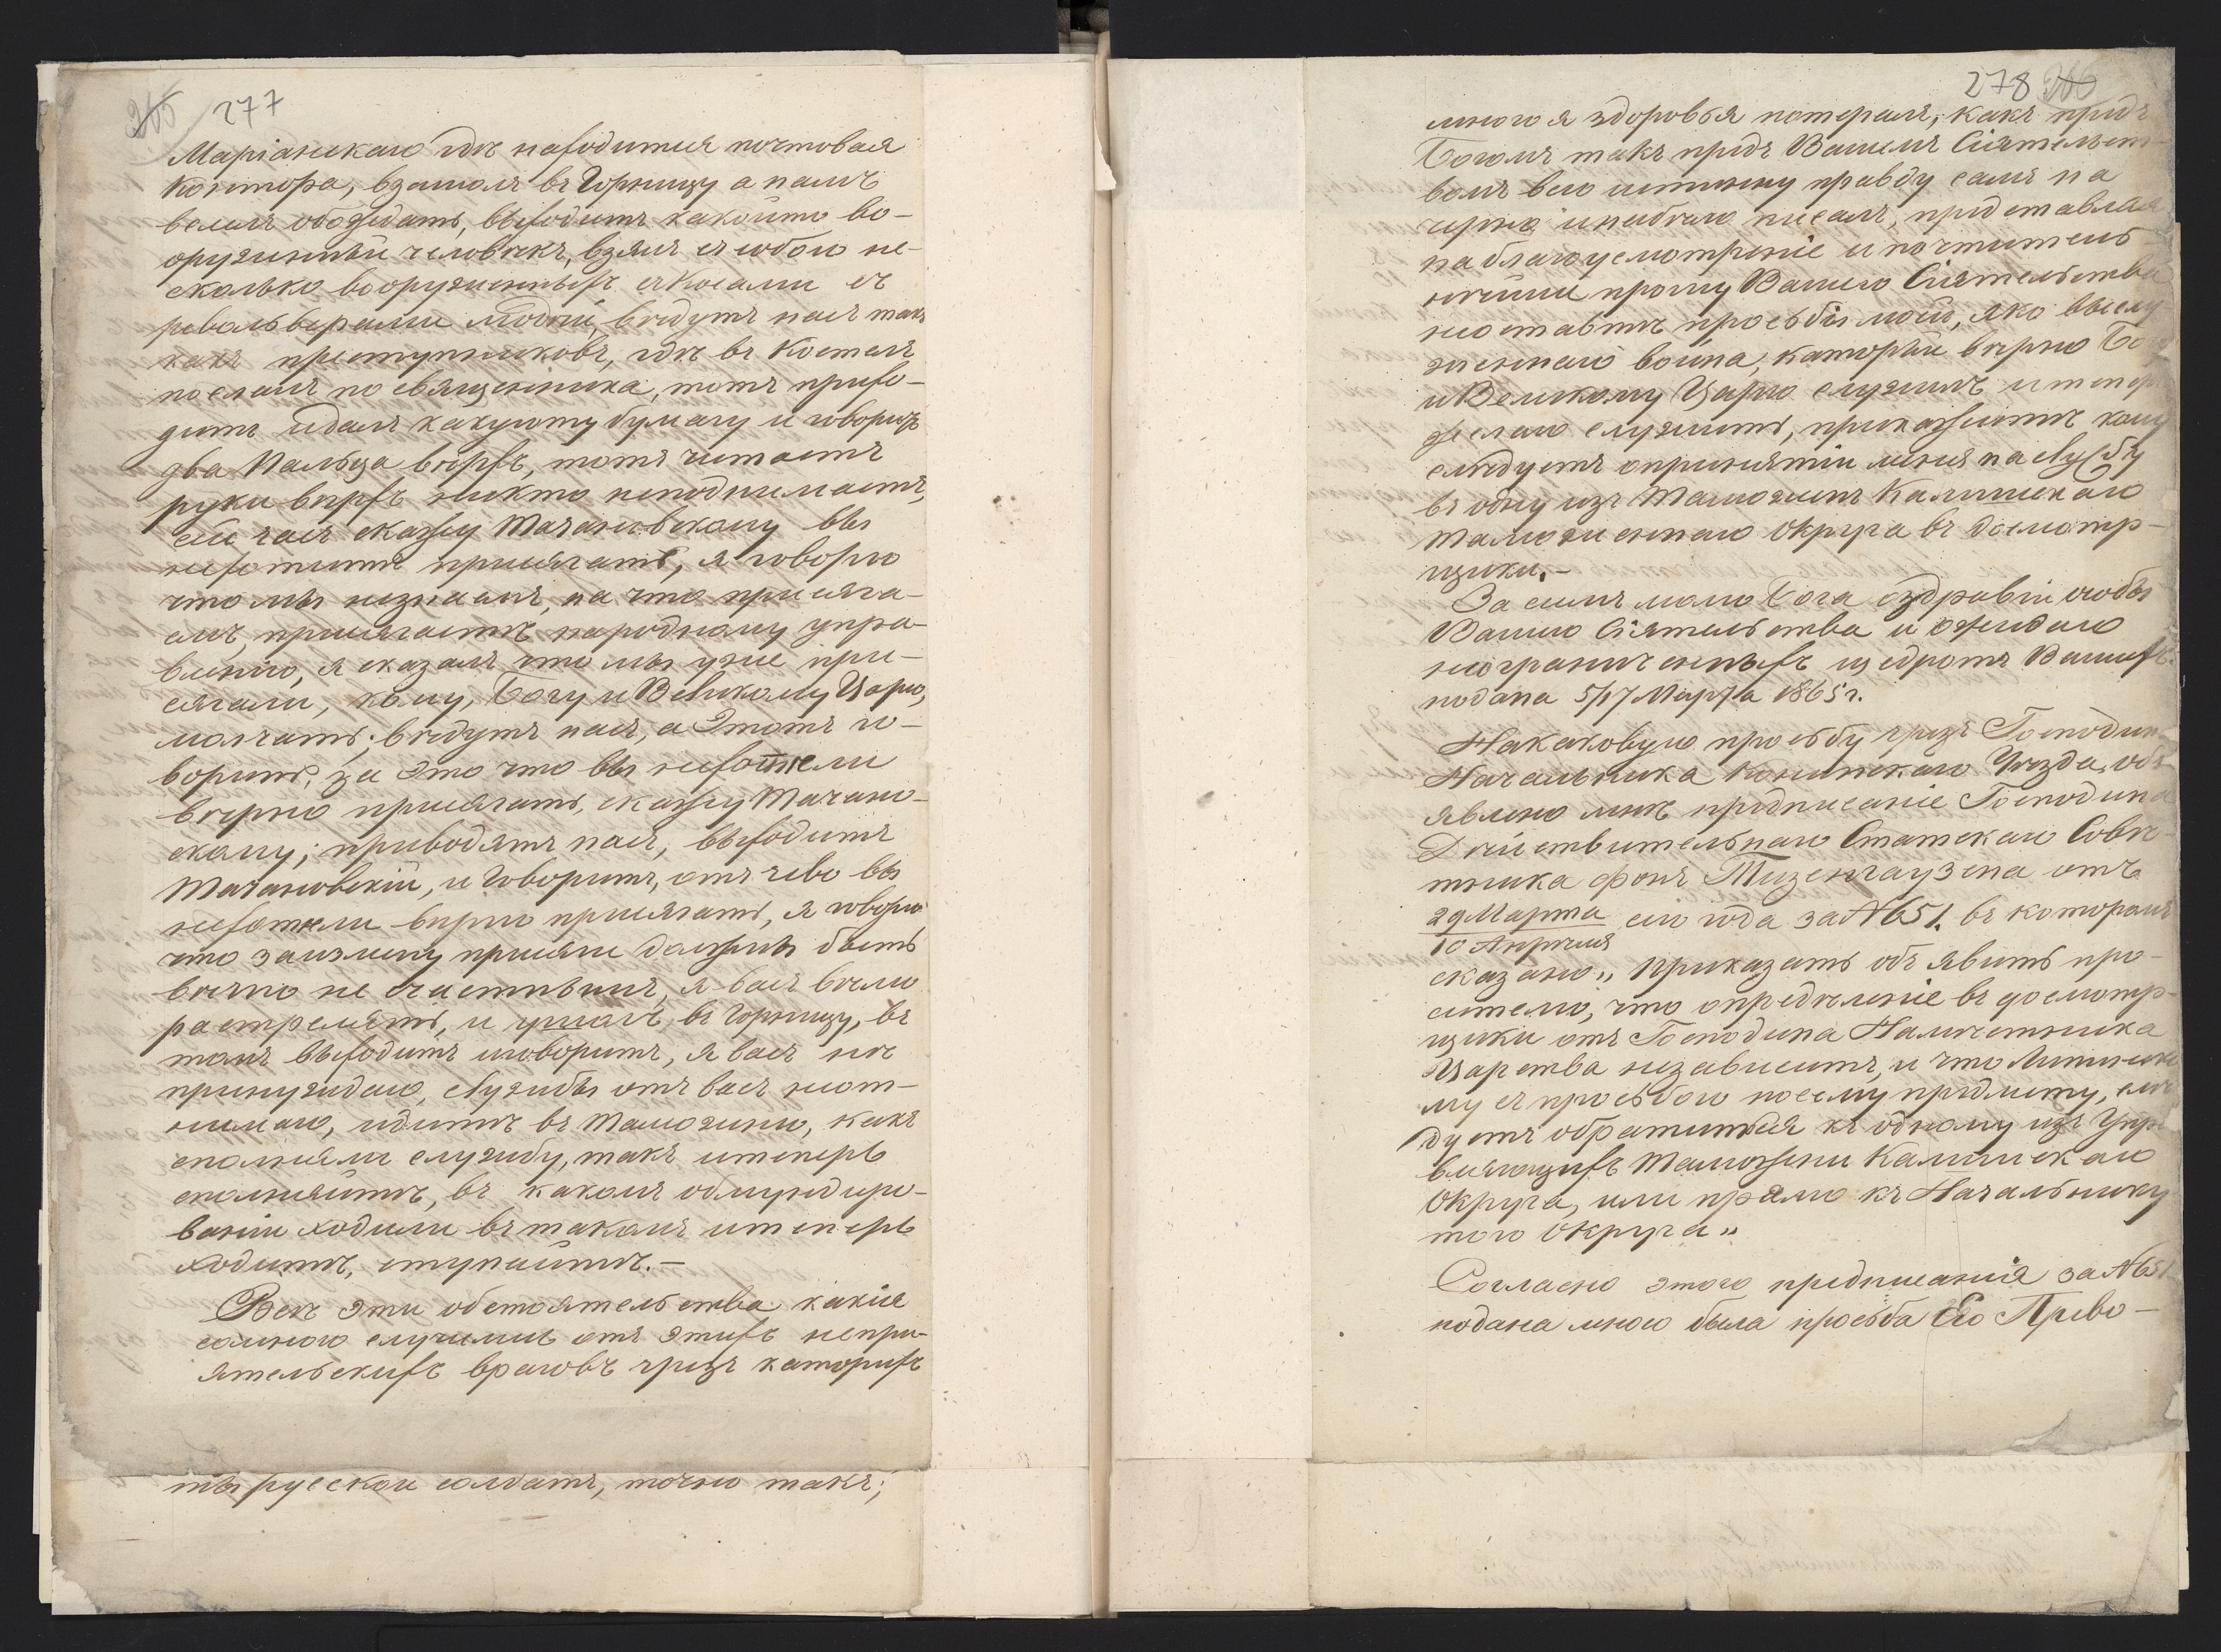 277
Маріанскаго гдѣ находитися почтовая
Контора, взашолъ въ Горницу а намъ
велелъ обождать, выходитъ какойто во-
оружинный человѣкъ, взялъ съ собою не-
сколько вооружинныхъ съ Косами съ
револьверами людей, ведутъ насъ такъ
какъ преступниковъ, гдѣ въ Костелъ
послалъ по священника, тотъ прихо-
дитъ идалъ какуюту бумагу и говоритъ
два Пальца верхъ, тотъ читаетъ
руки верхъ никто неподнимаетъ,
сей часъ скажу Тачановскому вы
нехотите присягать, я говорю
что мы незнаемъ, на что присяга-
емъ, присягаетѣ народному упра-
влению, я сказалъ что мы уже при-
сягали, кому, Богу и Великому Царю,
молчать; ведутъ насъ, а Этотъ го-
воритъ, за Это что вы нехотели
верно присягать, скажу Тачано-
скому; приводятъ насъ, выходитъ
Тачановскій, и Говоритъ, отъ чево вы
нехотели верно присягать, я говорю
что заизмену присяги должны быть
вѣчно не счастнымъ, я васъ вѣлю
растрелять, и ушолъ въ Горницу, въ
томъ выходитъ иговоритъ, я васъ не
принуждаю, службы отъ васъ неот-
нимаю, идитѣ въ Таможни, какъ
сполняли службу, такъ итеперь
сполняйтѣ, въ какомъ обмундиро-
ваніи ходили въ такомъ итеперь
ходитѣ, ступайтѣ.-
Всѣ эти обстоятельства какіе
сомною случились отъ этихъ непри-
ятельскихъ враговъ чрезъ которихъ
ты русской солдатъ, точно такъ;
278
много я здоровья потерялъ, какъ предъ
Богомъ такъ предъ Вашимъ Сіятельст-
вомъ всю истинну правду самъ на
черно инабело писалъ, представляя
на благоусмотреніе и почтитель-
нейше прошу Вашего Сіятельства
неоставить просьбы моей, яко выслу
женнаго воина, каторый верно Бо
и Великому Царю служилъ и тепер
желаю служить, прикажитѣ кому
следуетъ опринятіи меня на службу
въ одну изъ Таможенъ Калишскаго
Таможеннаго Округа въ досмотр-
щики.-
За симъ молю Бога оздравіи особы
Вашего Сіятельства и ожидаю
неограниченныхъ щедротъ Вашихъ.
подана 5/17 Марта 1865 г.
Накаковую просьбу чрезъ Господин
Начальника Конинскаго Уѣзда, объ-
явлено мнѣ предписаніе Господина
Дѣйствительнаго Статскаго Совѣ-
тника фонъ Тизенгаузена отъ
29 Марта / 10 Апрѣля сего года за № 651. въ которомъ
сказано „ приказать объявить про-
сителю, что определеніе въ досмотр-
щики отъ Господина Намѣстника
Царства независитъ, и что
му съ просьбою посему предмету, слѣ
дуетъ обратиться къ одному изъ Упра
вляющихъ Таможни Калишскаго
Округа, или прямо къ Начальнику
того Округа „
Согласно этого предписанія за № 651
подана мною была просьба Его Прево-